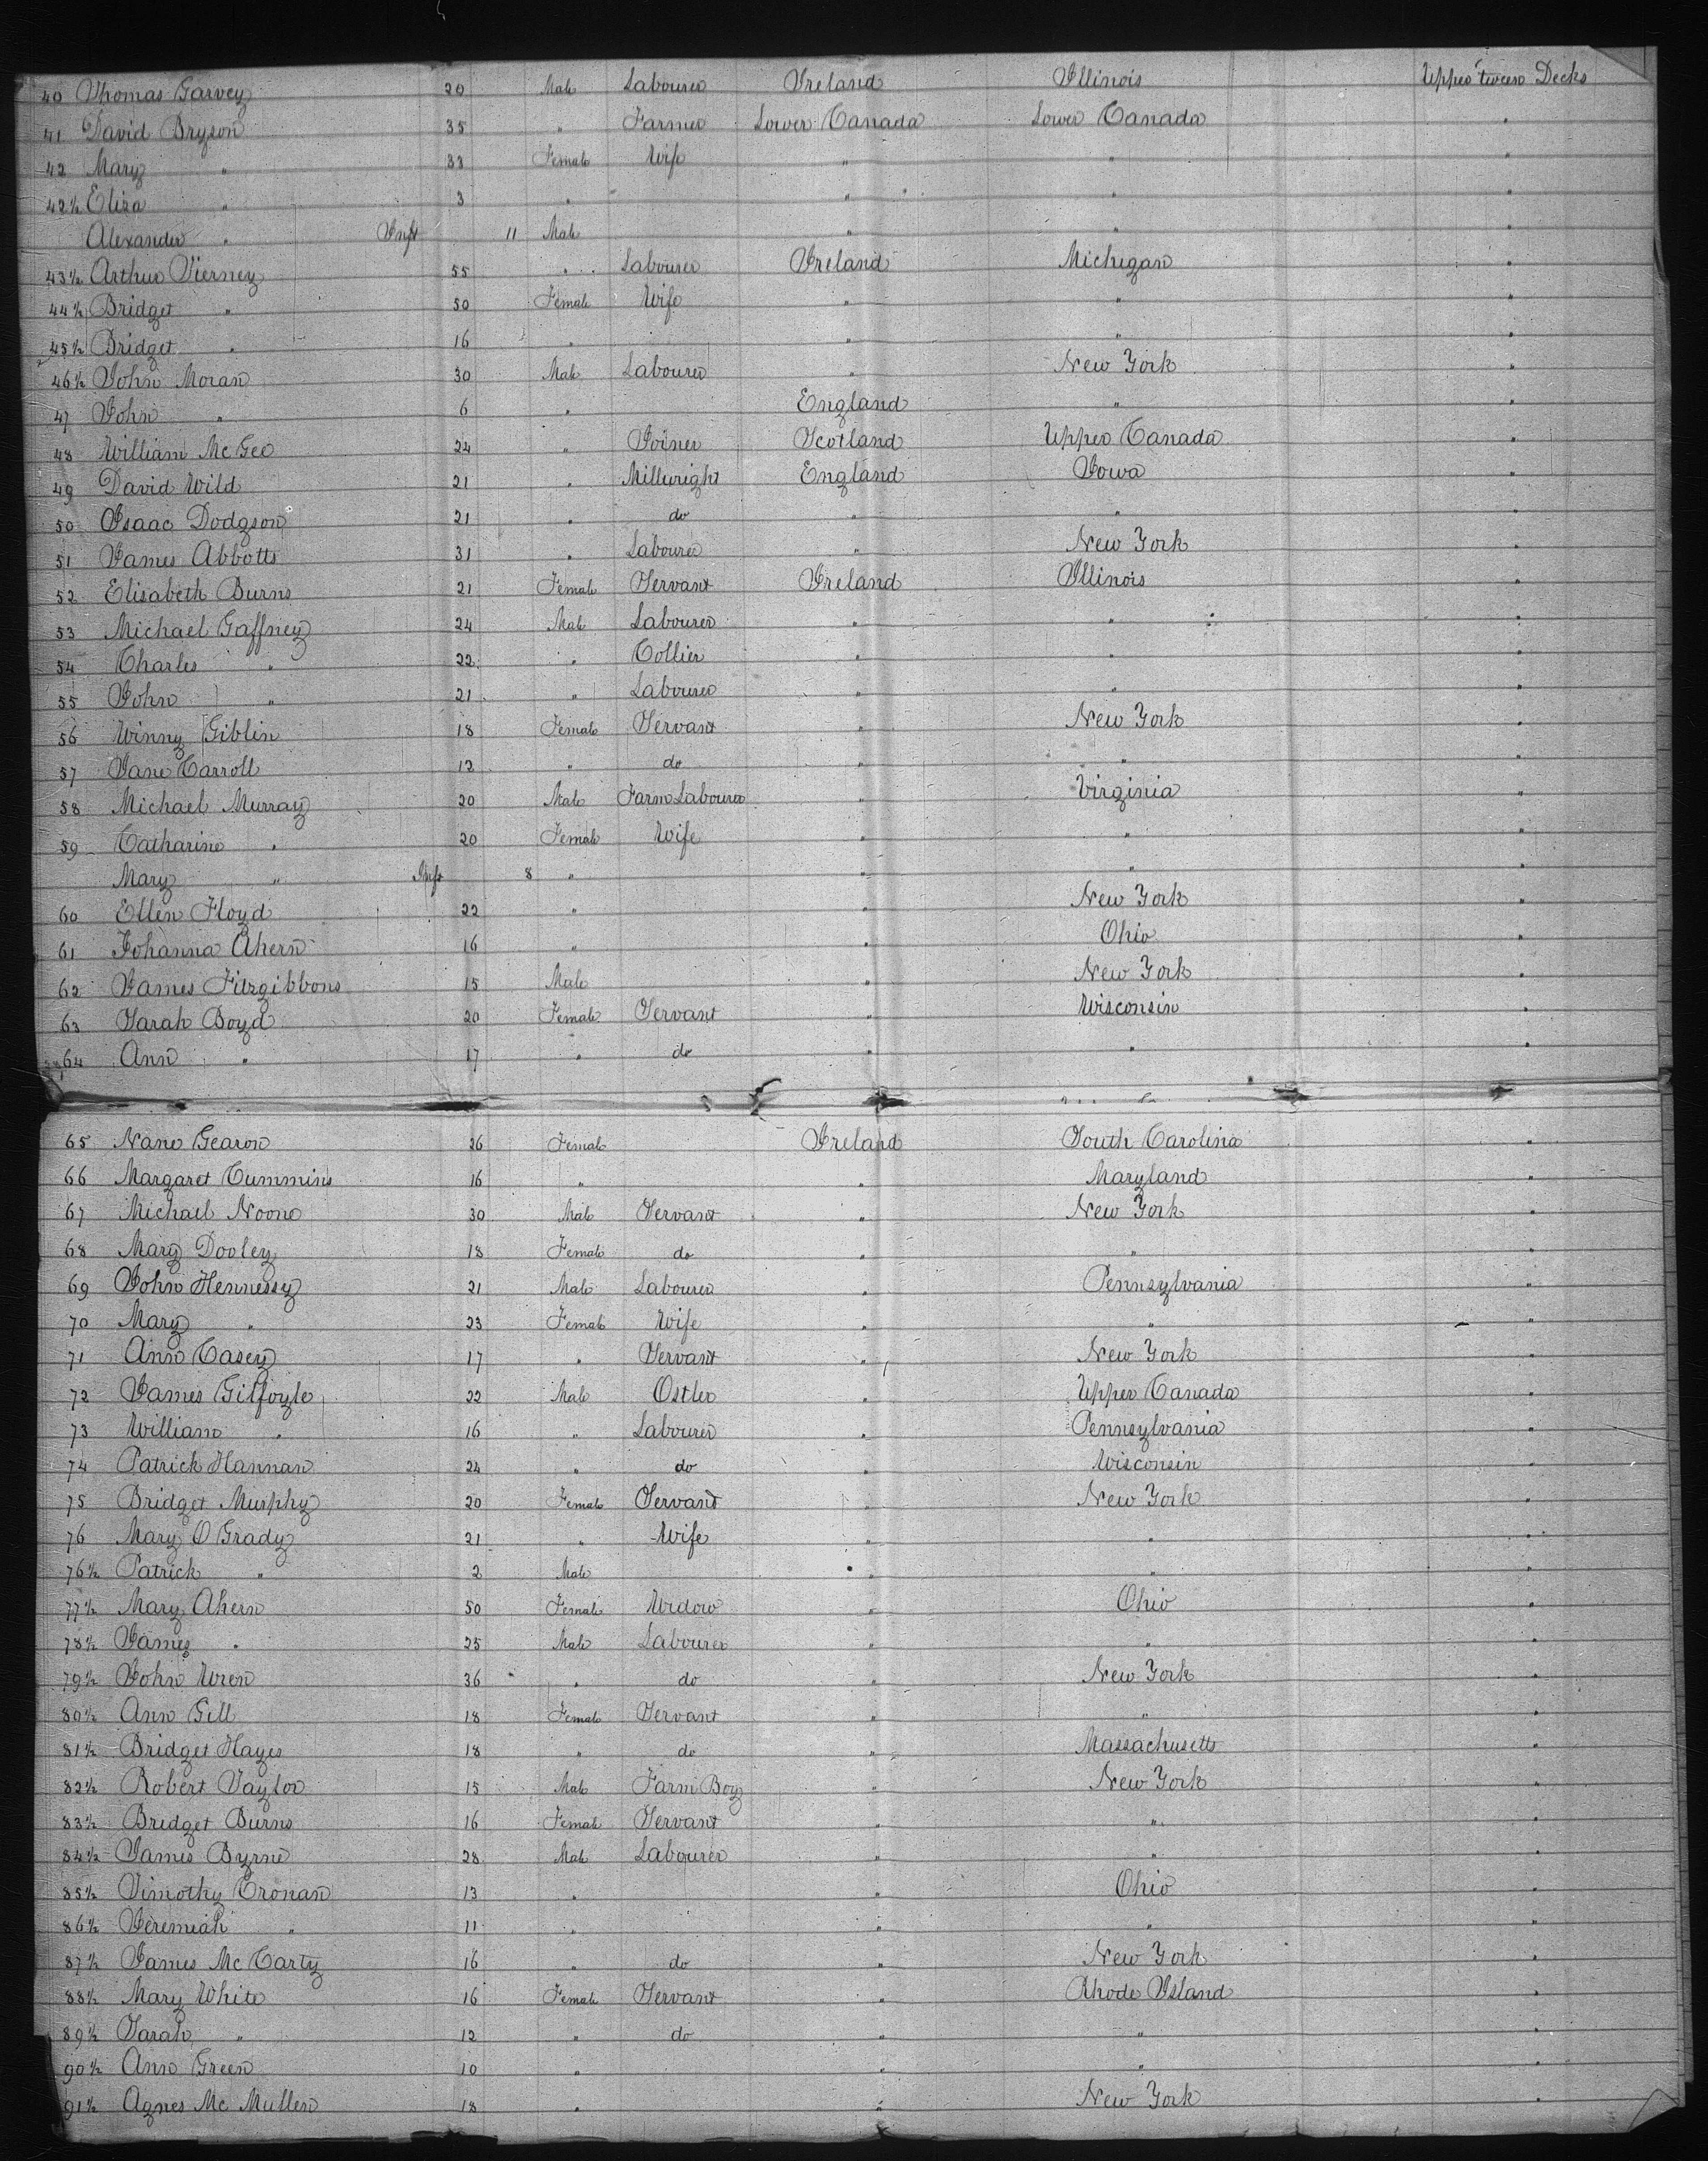 40 Thomas Garvey 20 Male Labourer Ireland Illinois Upper 'tween Decks
41 David Bryson 35 " Farmer Lower Canada Lower Canada "
42 Mary " 33 Female Wife " " "
42½ Eliza " 3 " " " "
Alexander " Inft 11 Male " " "
43½ Arthur Tierney 55 " Labourer Ireland Michigan "
44½ Bridget " 50 Female Wife " " "
45½ Bridget " 16 " " " "
46½ John Moran 30 Male Labourer " New York "
47 John " 6 " England " "
48 William McGee 24 " Joiner Scotland Upper Canada "
49 David Wild 21 " Millwright England Iowa "
50 Isaac Dodgson 21 " do " " "
51 James Abbotts 31 " Labourer " New York "
52 Elisabeth Burns 21 Female Servant Ireland Illinois "
53 Michael Gaffney 24 Male Labourer " " "
54 Charles " 22 " Collier " " "
55 John " 21 " Labourer " " "
56 Winny Giblin 18 Female Servant " New York "
57 Jane Carroll 12 " do " " "
58 Michael Murray 20 Male Farm Labourer " Virginia "
59 Catharine " 20 Female Wife " " "
Mary " Inft 8 " " " "
60 Ellen Floyd 22 " " New York "
61 Johanna Ahern 16 " " Ohio "
62 James Fitzgibbons 15 Male " New York "
63 Sarah Boyd 20 Female Servant " Wisconsin "
64 Ann " 17 " do " " "
65 Nane Gearon 26 Female Ireland South Carolina "
66 Margaret Cummins 16 " " Maryland "
67 Michael Noone 30 Male Servant " New York "
68 Mary Dooley 18 Female do " " "
69 John Hennessy 21 Male Labourer " Pennsylvania "
70 Mary " 23 Female Wife " " "
71 Ann Casey 17 " Servant " New York "
72 James Gilfoyle 22 Male Ostler " Upper Canada "
73 William " 16 " Labourer " Pennsylvania "
74 Patrick Hannan 24 " do " Wisconsin "
75 Bridget Murphy 20 Female Servant " New York "
76 Mary O Grady 21 " Wife " " "
76½ Patrick " 2 Male " " "
77½ Mary Ahern 50 Female Widow " Ohio "
78½ James " 25 Male Labourer " " "
79½ John Wren 36 " do " New York "
80½ Ann Gill 18 Female Servant " " "
81½ Bridget Hayes 18 " do " Massachusetts "
82½ Robert Taylor 15 Male Farm Boy " New York "
83½ Bridget Burns 16 Female Servant " " "
84½ James Byrne 28 Male Labourer " " "
85½ Timothy Cronan 13 " " Ohio "
86½ Jeremiah " 11 " " " "
87½ James Mc Carty 16 " do " New York "
88½ Mary White 16 Female Servant " Rhode Island "
89½ Sarah " 12 " do " " "
90½ Ann Green 10 " " " "
91½ Agnes Mc Mullen 18 " " New York "